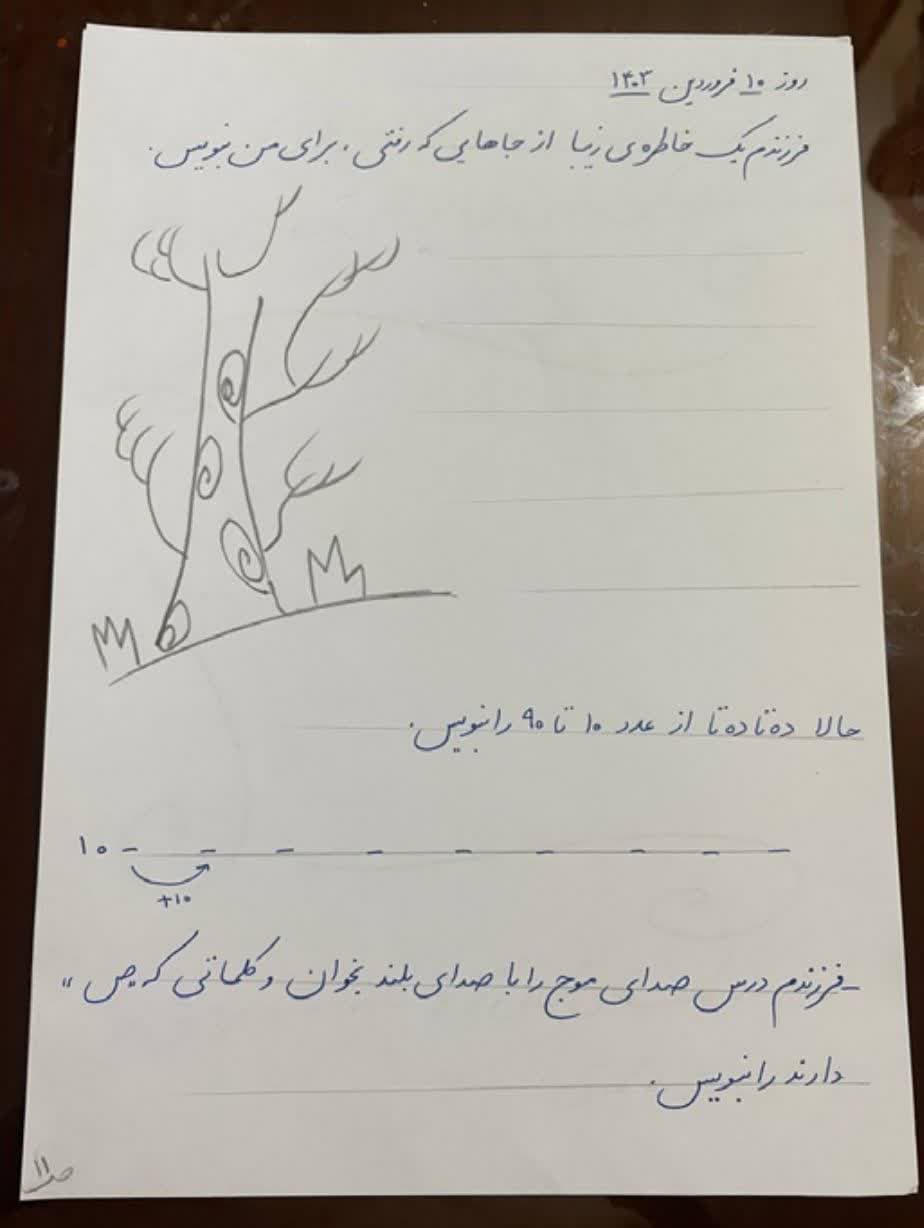 روز ۱۰ فروردین ۱۴۰۳
فرزندم یک خاطره‌ی زیبا از جاهایی که رفتی، برای من بنویس.
حالا ده تا ده تا از عدد ۱۰ تا ۹۰ را بنویس.
۱۰
+۱۰
- فرزندم درس صدای موج را با صدای بلند بخوان و کلماتی که ص "
دارند را بنویس.
ص ۱۱